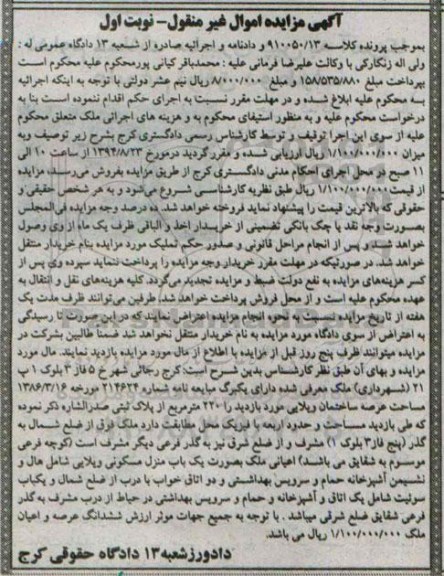 آگهی مزایده اموال غیر منقول- نوبت اول
بموجب پرونده کلاسه ۹۱۰۰۵۰/۱۳ و دادنامه و اجرائیه صادره از شعبه ۱۳ دادگاه عمومی له :
ولی اله زنگارکی با وکالت علیرضا فرمانی علیه : محمدباقر کیانی پورمحکوم علیه محکوم است
بپرداخت مبلغ ۱۵۸/۵۳۵/۸۸۰ و مبلغ ۸/۰۰۰/۰۰۰ ریال نیم عشر دولتی با توجه به اینکه اجرائیه
به محکوم علیه ابلاغ شده و در مهلت مقرر نسبت به اجرای حکم اقدام ننموده است بنا به
درخواست محکوم علیه و به منظور استیفای محکوم به و هزینه های اجرائی ملک متعلق محکوم
علیه از سوی این اجرا توقیف و توسط کارشناس رسمی دادگستری کرج بشرح زیر توصیف وبه
میزان ۱/۱۰۰/۰۰۰/۰۰۰ ریال ارزیابی شده و مقرر گردید درمورخ ۱۳۹۴/۸/۲۳ از ساعت ۱۰ الی
۱۱ صبح در محل اجرای احکام مدنی دادگستری کرج از طریق مزایده بفروش می‌رسد. مزایده
از قیمت ۱/۱۰۰/۰۰۰/۰۰۰ ریال طبق نظریه کارشناسی شروع می‌شود و به هر شخص حقیقی و
حقوقی که بالاترین قیمت را پیشنهاد نماید فروخته خواهد شد. ده درصد وجه مزایده فی‌المجلس
بصورت وجه نقد یا چک بانکی تضمینی از خریدار اخذ و الباقی ظرف یک ماه از وی وصول
خواهد شد و پس از انجام مراحل قانونی و صدور حکم تملیک مورد مزایده بنام خریدار منتقل
خواهد شد. در صورتیکه در مهلت مقرر خریدار وجه مزایده را پرداخت ننماید سپرده وی پس از
کسر هزینه‌های مزایده به نفع دولت ضبط و مزایده تجدید می‌گردد. کلیه هزینه‌های نقل و انتقال به
عهده محکوم علیه است و از محل فروش پرداخت خواهد شد. طرفین می‌توانند ظرف مدت یک
هفته از تاریخ مزایده نسبت به نحوه انجام مزایده اعتراض نمایند که در این صورت تا رسیدگی
به اعتراض از سوی دادگاه مورد مزایده به نام خریدار منتقل نخواهد شد ضمناً طالبین بشرکت در
مزایده میتوانند ظرف پنج روز قبل از مزایده با اطلاع از مال مورد مزایده بازدید نمایند. مال مورد
مزایده و بهای آن طبق نظر کارشناس بدین شرح است: کرج رجائی شهر خ ۵ فاز ۳ بلوک ۱ پ
۲۱ (شهرداری) ملک معرفی شده دارای یکبرگ مبایعه نامه شماره ۲۱۴۶۲۴ مورخه ۱۳۸۶/۳/۱۶
مساحت عرصه ساختمان ویلایی مورد بازدید را ۲۲۰ مترمربع از پلاک ثبتی صدرالشاره ذکر نموده
که طی بازدید مساحت و حدود اربعه با فیزیک محل مطابقت دارد ملک فوق از ضلع شمال به
گذر (پنج فاز۳ بلوک ۱) مشرف و از ضلع شرق نیز به گذر فرعی دیگر مشرف است (کوچه فرعی
موسوم به شقایق می باشد) اعیانی ملک بصورت یک باب منزل مسکونی ویلایی شامل هال و
نشیمن آشپزخانه حمام و سرویس بهداشتی و دو اتاق خواب با درب از ضلع شمال و یکباب
سوئیت شامل یک اتاق و آشپزخانه و حمام و سرویس بهداشتی در حیاط از درب مشرف به گذر
فرعی شقایق ضلع شرقی میباشد . با توجه به جمیع جهات موثر ارزش ششدانگ عرصه و اعیان
ملک ۱/۱۰۰/۰۰۰/۰۰۰ ریال می باشد.
دادورزشعبه ۱۳ دادگاه حقوقی کرج